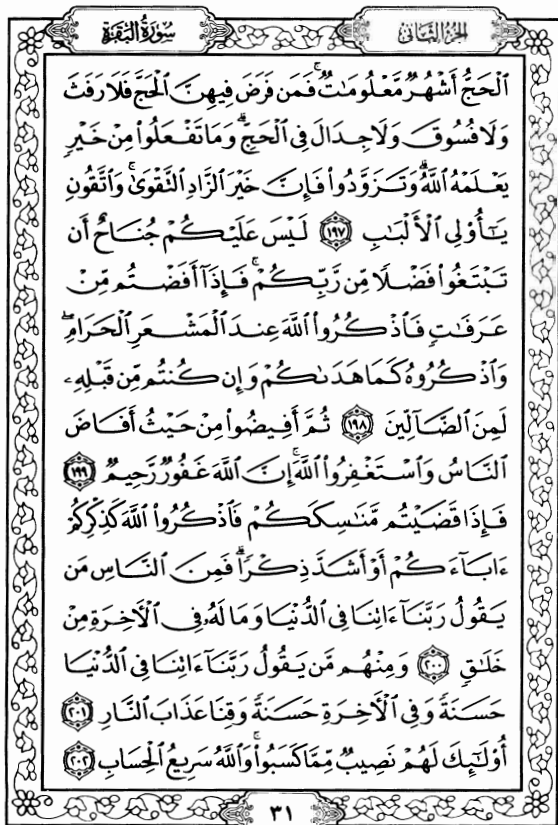 سُورَةُ البَقَرَةِ
الجزءُ الثَّانِي
ٱلْحَجُّ أَشْهُرٌ مَّعْلُومَٰتٌ ۚ فَمَن فَرَضَ فِيهِنَّ ٱلْحَجَّ فَلَا رَفَثَ
وَلَا فُسُوقَ وَلَا جِدَالَ فِى ٱلْحَجِّ ۗ وَمَا تَفْعَلُوا۟ مِنْ خَيْرٍ
يَعْلَمْهُ ٱللَّهُ ۗ وَتَزَوَّدُوا۟ فَإِنَّ خَيْرَ ٱلزَّادِ ٱلتَّقْوَىٰ ۚ وَٱتَّقُونِ
يَٰٓأُو۟لِى ٱلْأَلْبَٰبِ ١٩٧ لَيْسَ عَلَيْكُمْ جُنَاحٌ أَن
تَبْتَغُوا۟ فَضْلًا مِّن رَّبِّكُمْ ۚ فَإِذَآ أَفَضْتُم مِّنْ
عَرَفَٰتٍ فَٱذْكُرُوا۟ ٱللَّهَ عِندَ ٱلْمَشْعَرِ ٱلْحَرَامِ ۖ
وَٱذْكُرُوهُ كَمَا هَدَىٰكُمْ وَإِن كُنتُم مِّن قَبْلِهِۦ
لَمِنَ ٱلضَّآلِّينَ ١٩٨ ثُمَّ أَفِيضُوا۟ مِنْ حَيْثُ أَفَاضَ
ٱلنَّاسُ وَٱسْتَغْفِرُوا۟ ٱللَّهَ ۚ إِنَّ ٱللَّهَ غَفُورٌ رَّحِيمٌ ١٩٩
فَإِذَا قَضَيْتُم مَّنَٰسِكَكُمْ فَٱذْكُرُوا۟ ٱللَّهَ كَذِكْرِكُمْ
ءَابَآءَكُمْ أَوْ أَشَدَّ ذِكْرًا ۗ فَمِنَ ٱلنَّاسِ مَن
يَقُولُ رَبَّنَآ ءَاتِنَا فِى ٱلدُّنْيَا وَمَا لَهُۥ فِى ٱلْءَاخِرَةِ مِنْ
خَلَٰقٍ ٢٠٠ وَمِنْهُم مَّن يَقُولُ رَبَّنَآ ءَاتِنَا فِى ٱلدُّنْيَا
حَسَنَةً وَفِى ٱلْءَاخِرَةِ حَسَنَةً وَقِنَا عَذَابَ ٱلنَّارِ ٢٠١
أُو۟لَٰٓئِكَ لَهُمْ نَصِيبٌ مِّمَّا كَسَبُوا۟ ۚ وَٱللَّهُ سَرِيعُ ٱلْحِسَابِ ٢٠٢
٣١